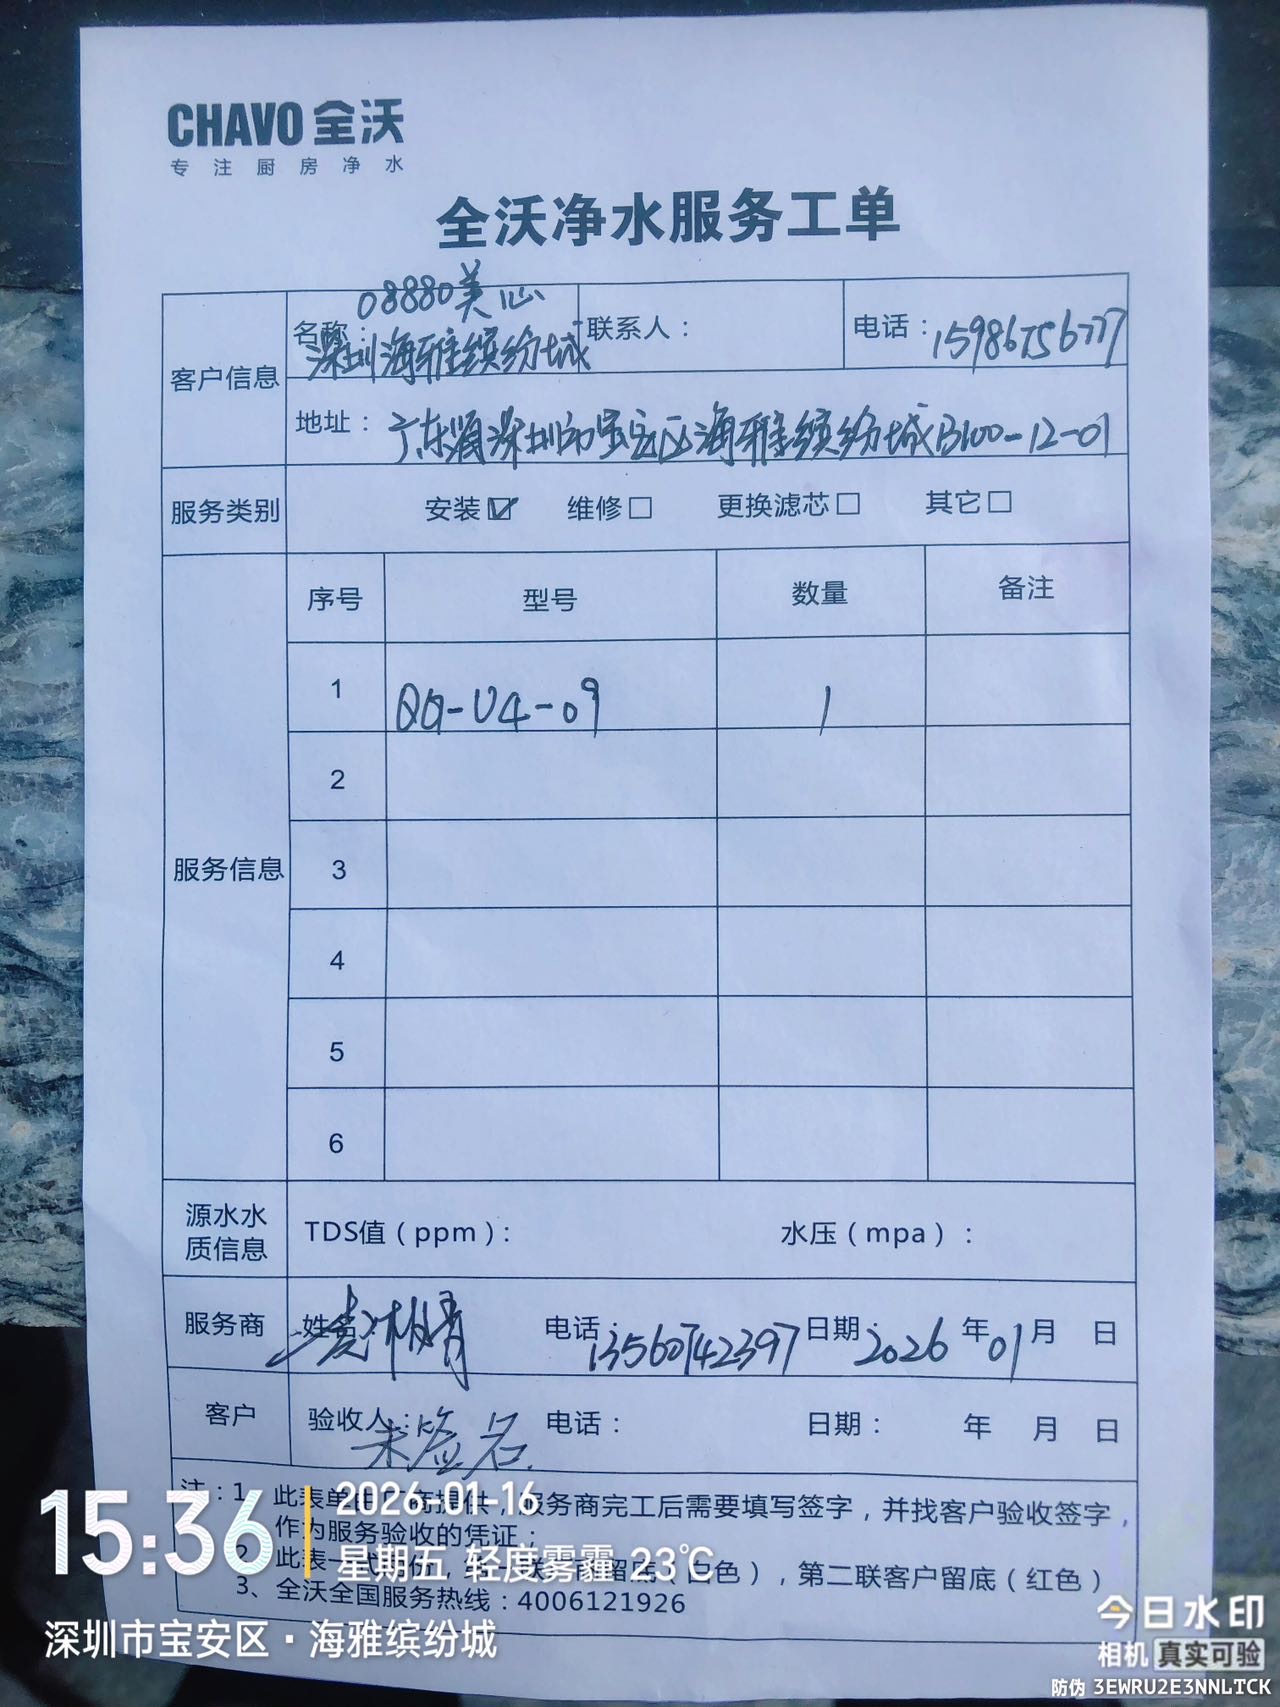 CHAVO 全沃
专注厨房净水
全沃净水服务工单
客户信息
名称：08880美心
深圳海雅缤纷城
联系人：
电话：15986756777
地址：广东省深圳市宝安区海雅缤纷城B100-12-01
服务类别 安装☑ 维修□ 更换滤芯□ 其它□
服务信息
序号 型号 数量 备注
1 QG-U4-09 1
2
3
4
5
6
源水水质信息 TDS值（ppm）： 水压（mpa）：
服务商 姓名 电话：13560742397 日期：2026年01月 日
客户 验收人： 未签名 电话： 日期： 年 月 日
注：1、此表单由厂商提供，服务商完工后需要填写签字，并找客户验收签字，
作为服务验收的凭证；
2、此表一式两份，留底（白色），第二联客户留底（红色）
3、全沃全国服务热线：4006121926
15:36
2026-01-16
星期五 轻度雾霾 23℃
深圳市宝安区·海雅缤纷城
今日水印
相机 真实可验
防伪 3EWRU2E3NNLTCK